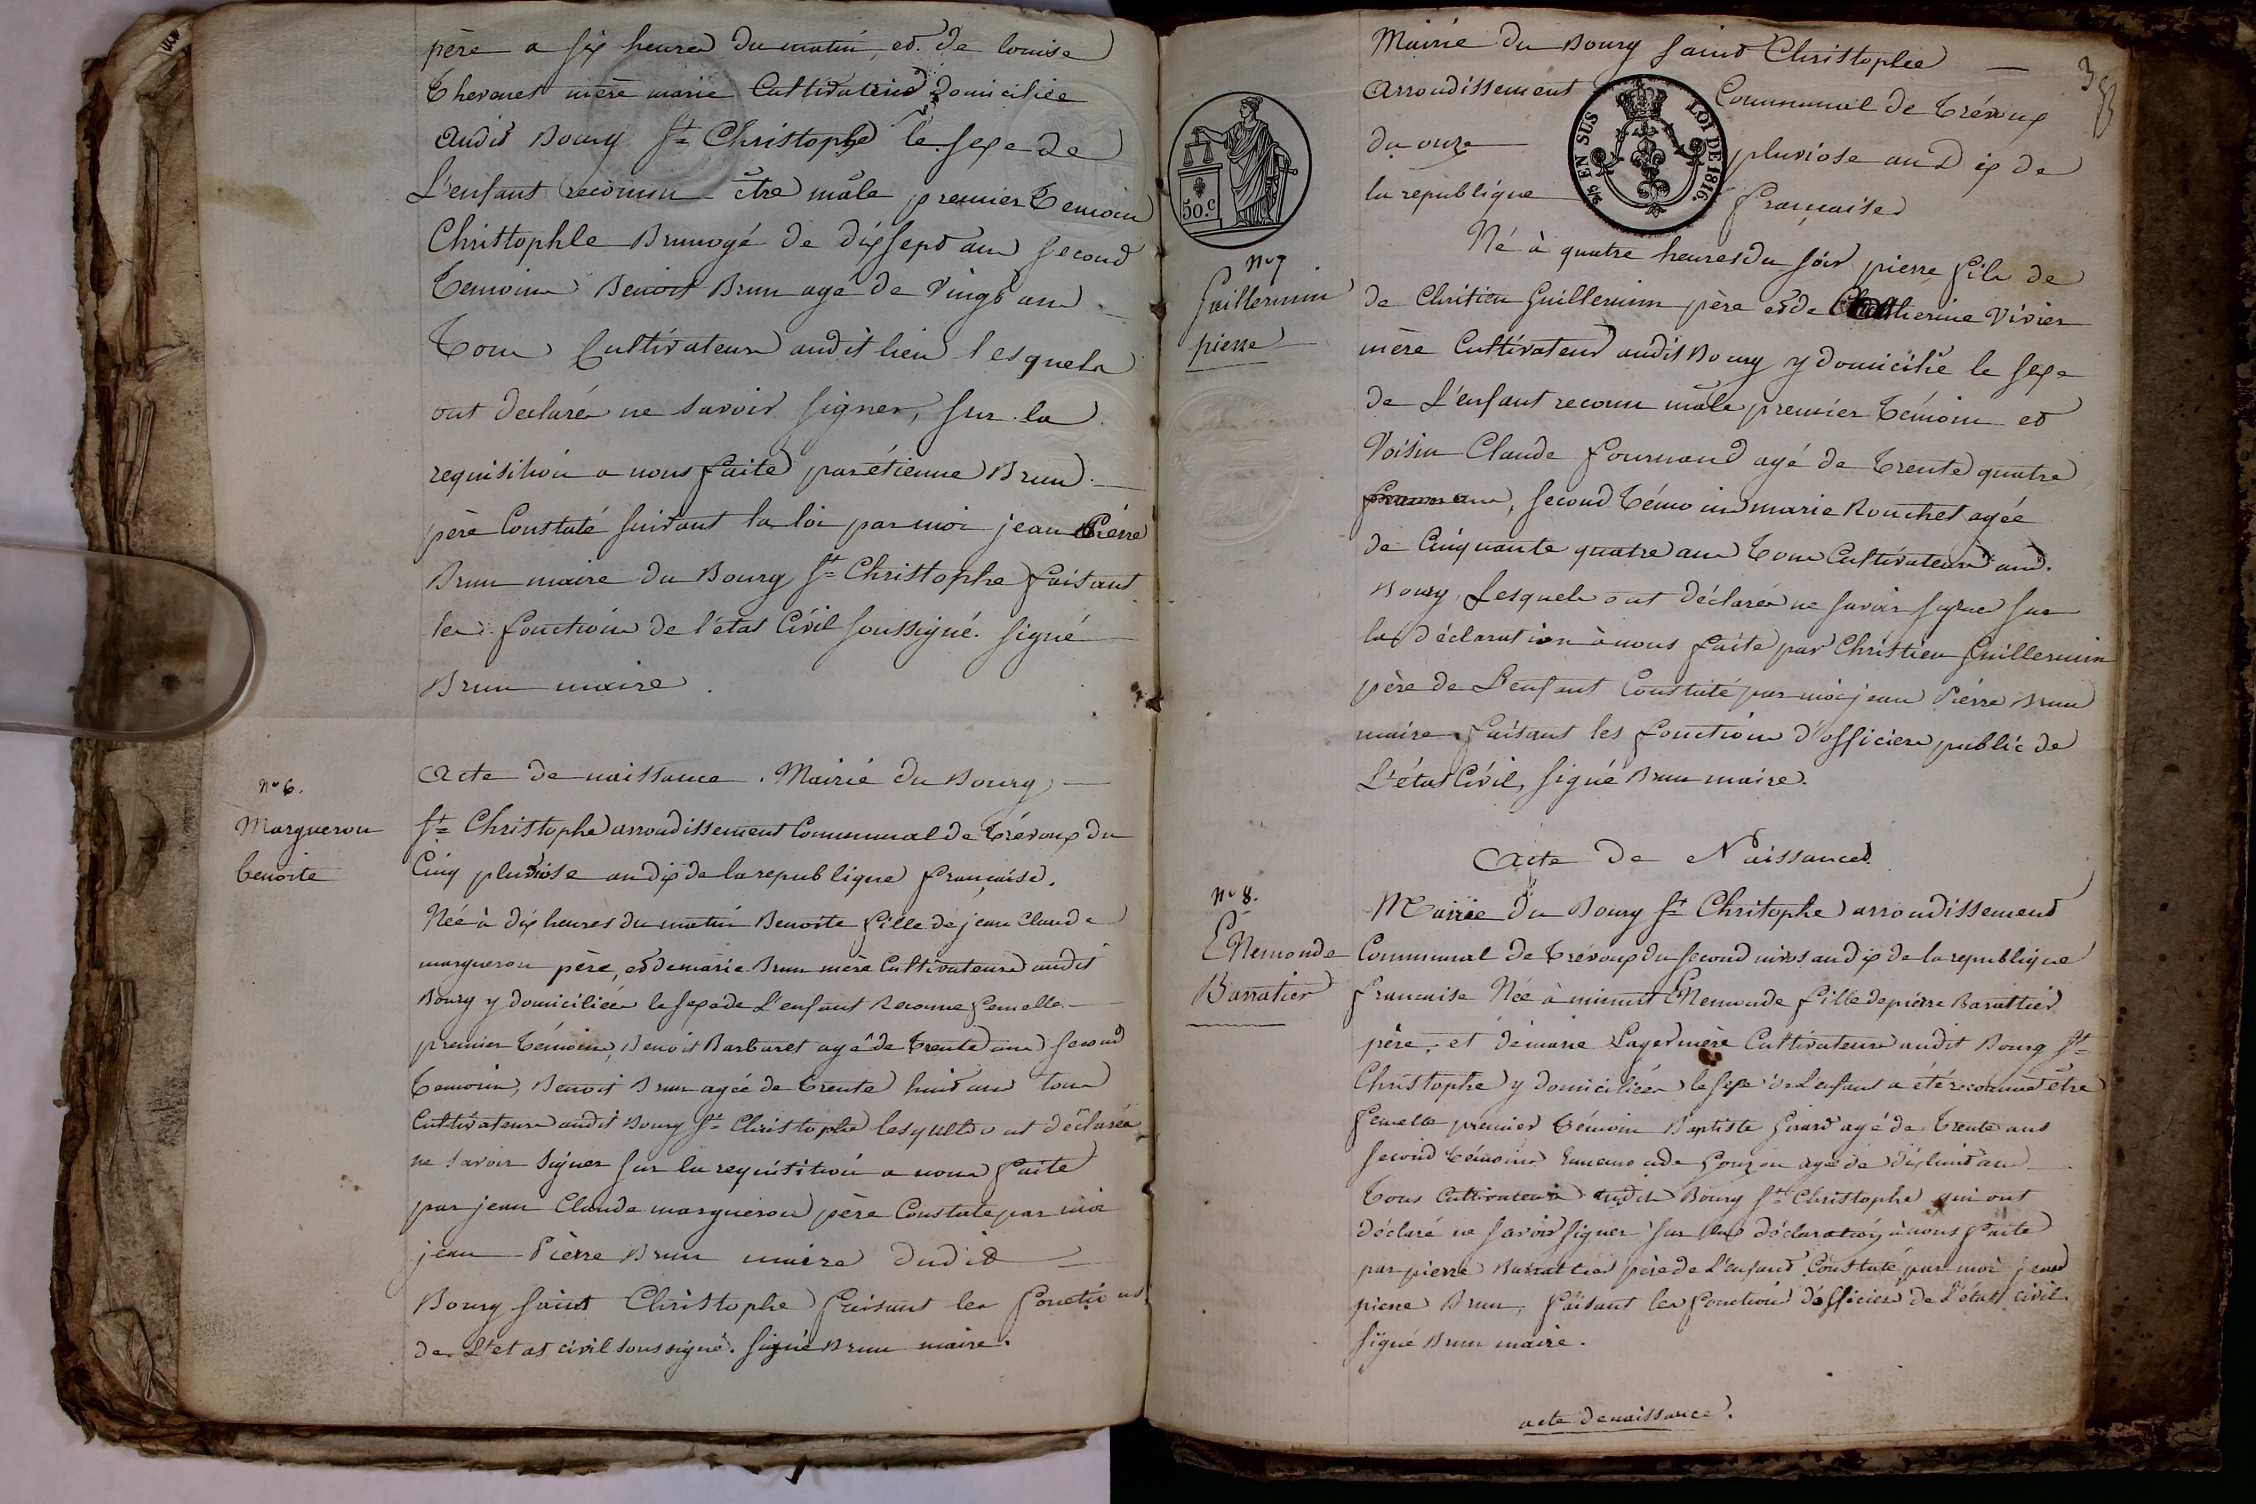 père a six heures du matin et de louise
Thevenet mère marié Cultivateurs Domiciliée
audit Bourg St Christophe le sexe de
L'enfant reconnu être mâle premier Temoin
Christophle Brun agé de dixsept ans second
Temoins Benoit Brun agé de vingt ans
Tous Cultivateurs audit lieu lesquels
ont declarés ne savoir signer, sur la
requisition a nous faite par étienne Brun
père Constaté suivant la loi par moi jean Pierre
Brun maire du Bourg St Christophe faisant
les fonctions de l'état Civil soussigné. signé
Brun maire.
No 6.
Margueron
benoite
Acte de naissance. Mairié du Bourg
St Christophe arrondissement Communal de Trévoux du
Cinq pluviose an dix de la republique française.
Née à dix heures du matin Benoite fille de jean Claude
margueron père, et de marie Brun mère Cultivateurs audit
Bourg y domiciliées le sexe de L'enfant Reconnu femelle
premier Témoins, Benoit Barbaret agé de trente ans second
Temoin, Benoit Brun agée de trente huit ans tous
Cultivateurs audit Bourg St Christophe lesquels ont déclarés
ne savoir signer sur la requisition a nous faite
par jean Claude margueron père Constaté par moi
jean Pièrre Brun maire dudit
Bourg saint Christophe faisant les fonctions
de L'etat civil soussigné. signé Brun maire.
Mairie du Bourg saint Christophe
3
arrondissement Communal de Trévoux
du onze pluviose an Dix de
la republique française
2/5 EN SUS LOI DE 1816.
50.c
No 7
Guillermin
pierre
Né à quatre heures du soir pierre fils de
de Chritien Guillermin père et de Catherine Vivier
mère Cultivateurs audit Bourg y domicilié le sexe
de L'enfant reconnu mâle, premier Témoin et
Voisin Claude fournand agé de Trente quatre
ans, second Témoins marie Rouchet agée
de Cinquante quatre ans Tous Cultivateurs aud.
Bourg, Lesquels ont déclarés ne savoir signer sur
la déclaration à nous faite par Christien Guillermin
père de L'enfant Constaté par moi jean Pierre Brun
maire faisant les fonctions d'officiers public de
L'état Civil, signé Brun maire.
Acte de Naissances.
No 8.
Enemonde
Barratier
Mairie du Bourg St Christophe arrondissement
Communal de Trévoux du second nivos. an dix de la republique
francaise Née à minuit Enemonde fille de pierre Barattier
père, et de marie Layer mère Cultivateurs audit Bourg St
Christophe y domiciliées le sexe de L'enfant a été reconnu être
femelle premier Témoin Baptiste Girard agé de Trente ans
second témoins Ennemonde Gouzon agée de dixhuit ans
Tous Cultivateurs audit Bourg St Christophe qui ont
déclaré ne savoir signer sur la déclaration à nous faite
par pierre Barattier père de L'enfant Constaté par moi jean
pierre Brun, faisant les fonctions d'officiers de L'état civil.
signé Brun maire.
acte de naissance.